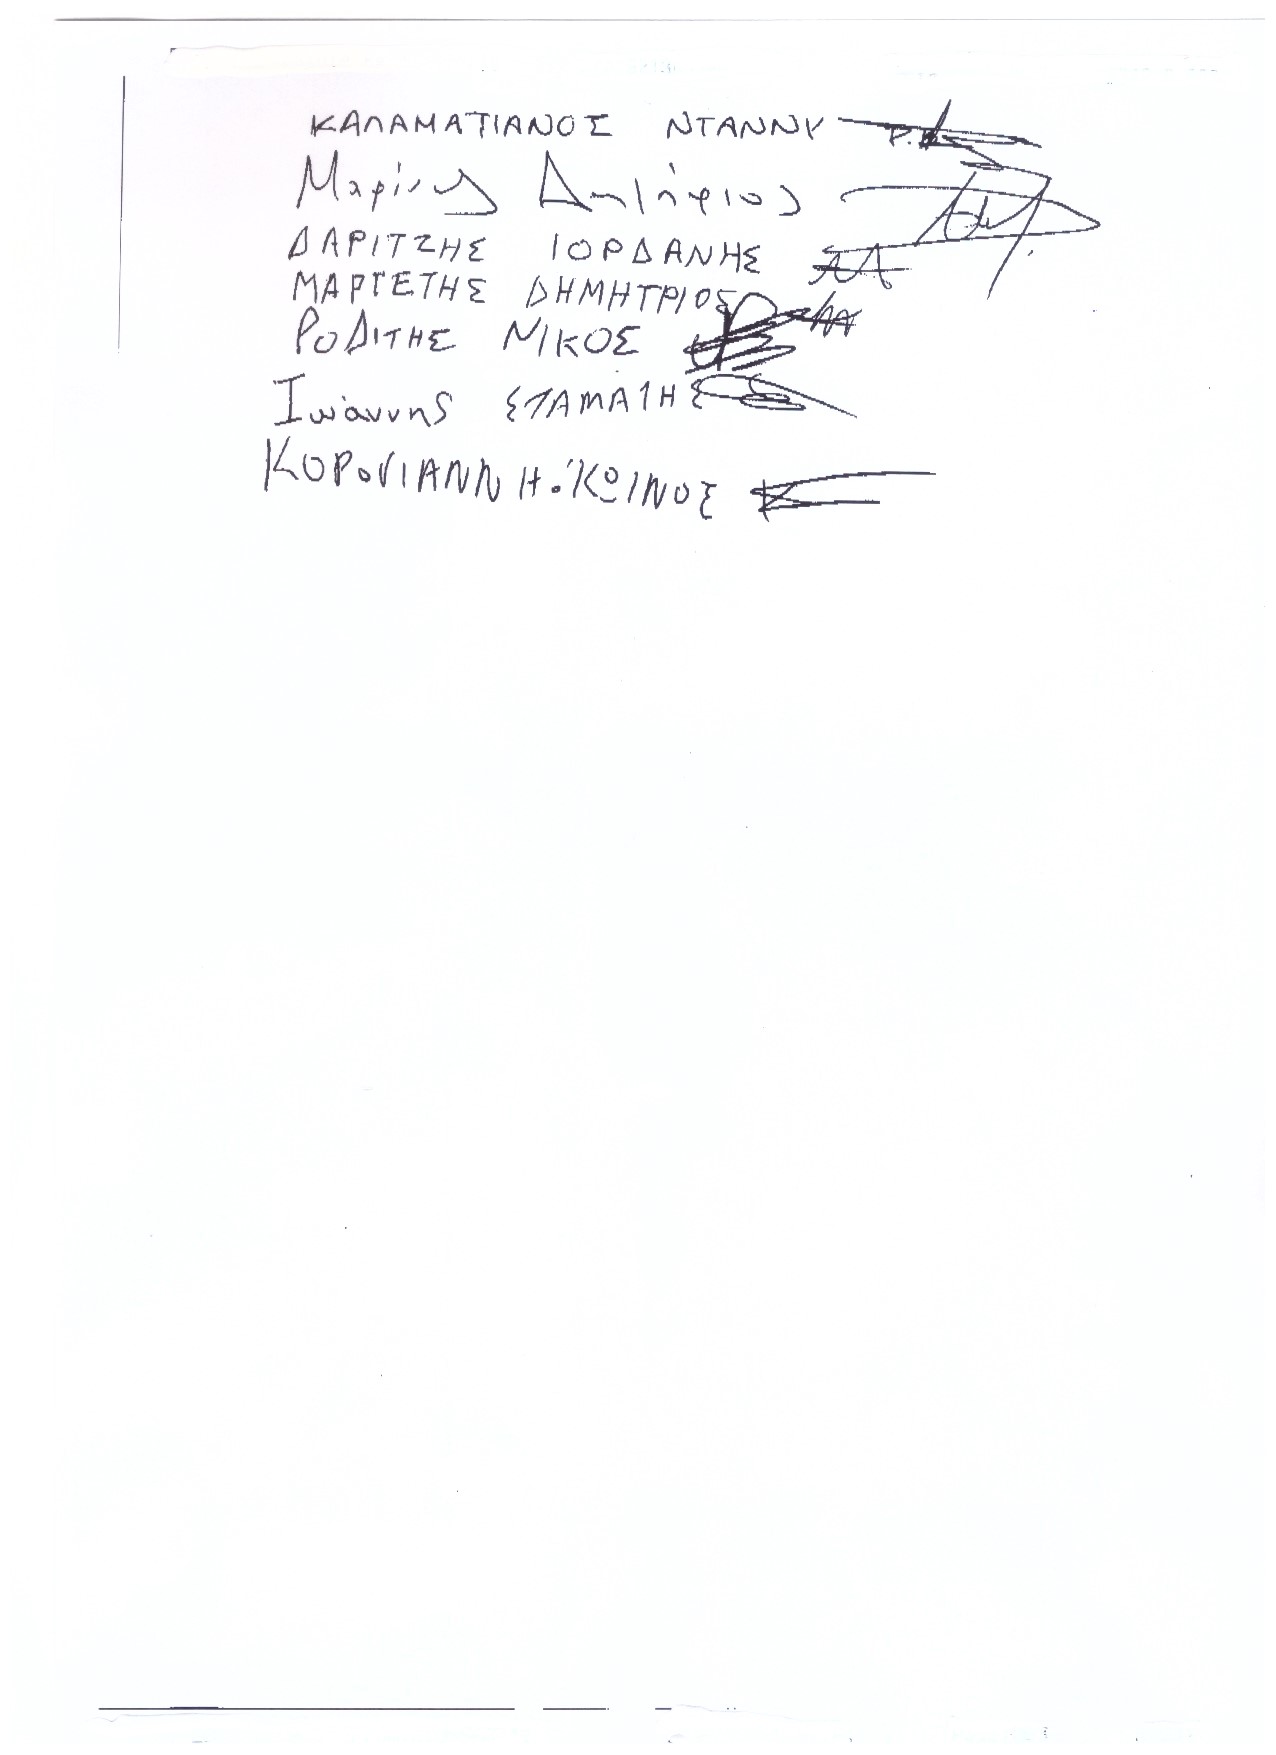 ΚΑΛΑΜΑΤΙΑΝΟΣ ΝΤΑΝΝΥ
Μαρίνος Δημήτριος
ΔΑΡΙΤΖΗΣ ΙΟΡΔΑΝΗΣ
ΜΑΡΓΕΤΗΣ ΔΗΜΗΤΡΙΟΣ
ΡΟΔΙΤΗΣ ΝΙΚΟΣ
Ιωάννης ΣΤΑΜΑΤΗΣ
ΚΟΡΟΓΙΑΝΝΗ